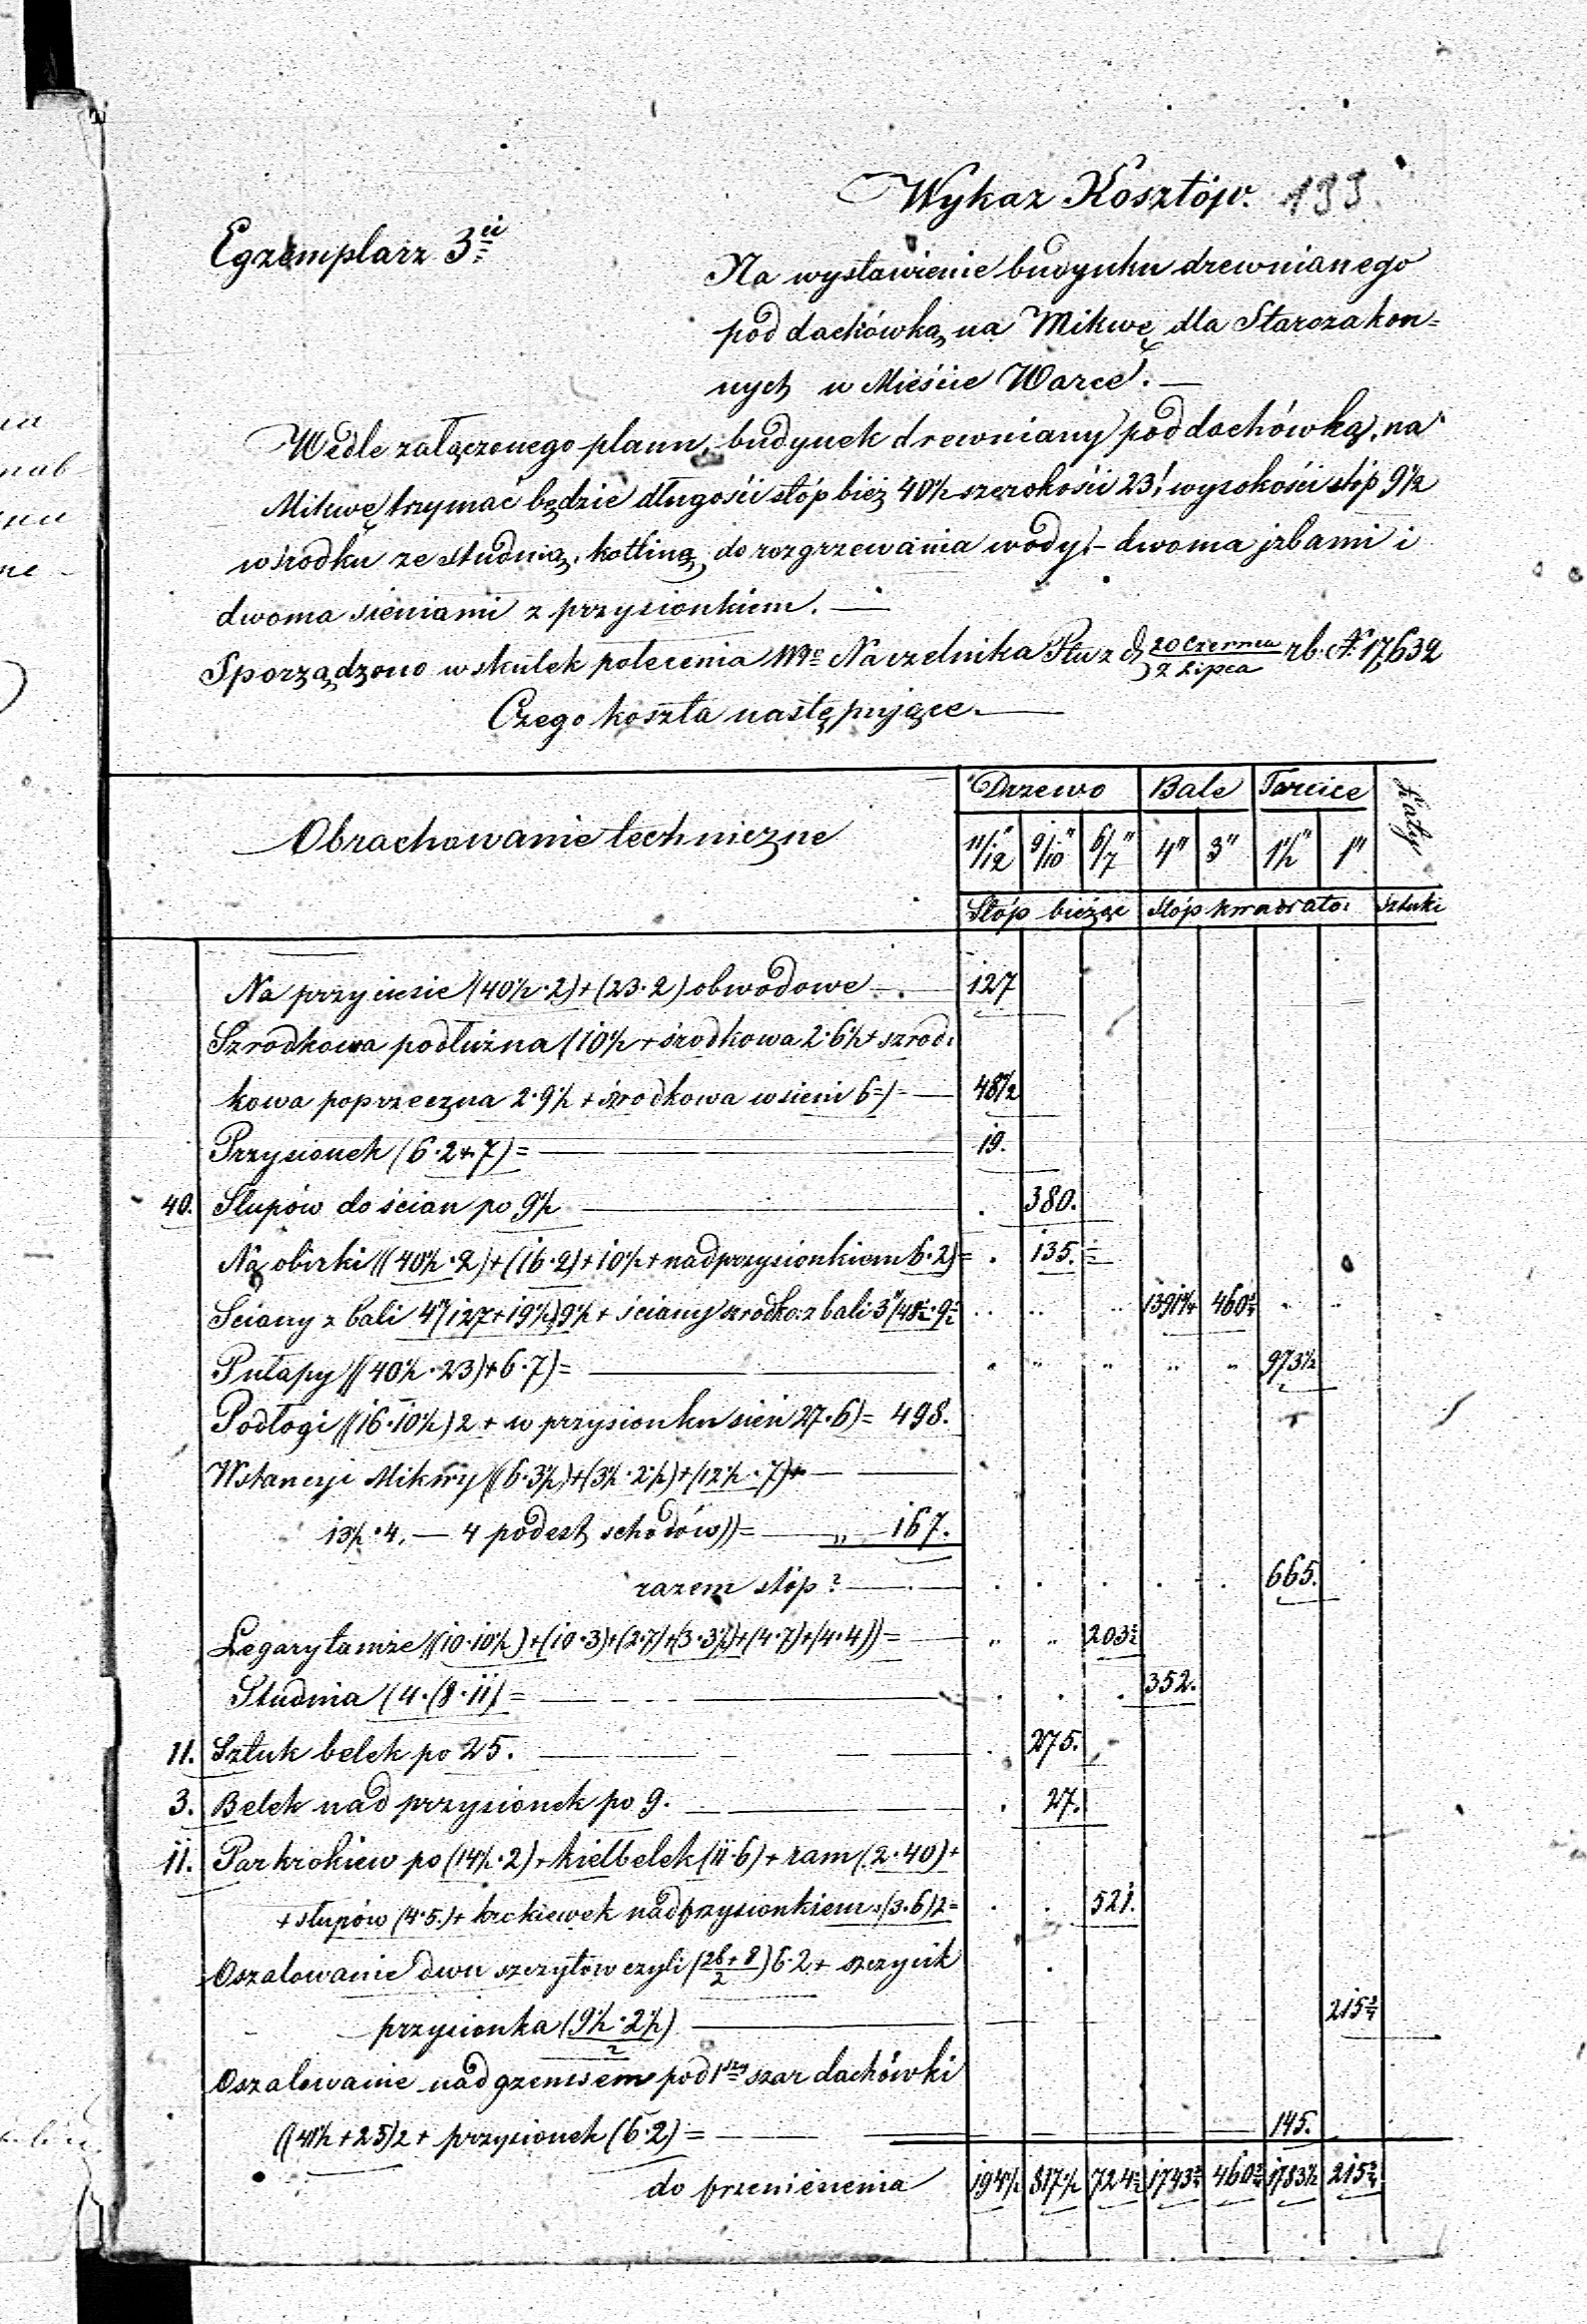 Wykaz Kosztów. 199.
Egzemplarz 3ci
Na wystawienie budynku drewnianego
pod dachówką na Mikwę dla Starozakon=
nych w Mieście Warce. —
Wedle załączonego planu, budynek drewniany pod dachówką, na
Mikwę trzymać będzie długości stóp bież 40½ szerokości 23, wysokości stóp 9½
w środku ze studnią, kotliną do rozgrzewania wody, – dwoma jzbami i
dwoma sieniami z przysionkiem. —
Sporządzono w skutek polecenia Naczelnika Ptu z d 20 Czerwca / 2 Lipca rb. N. 17,632
Czego koszta następujące. —
Obrachowanie techniczne
Drzewo Bale Tarcice Łaty
11/12" 9/10" 6/7" 4" 3" 1½" 1"
Stóp bieżące Stóp kwadrato: Sztuki
Na przyciesie (40½·2)+(23·2) obwodowe — 127
Szrodkowa podłużna (10½ + środkowa 2·6½ + szrod:
kowa poprzeczna 2·9½ + środkowa w sieni 6=) — 48½
Przysionek (6·2+7) = — 19.
40. Słupów do ścian po 9½ — 380.
Na obirki ((40½·2)+(16·2)+10½+nad przysionkiem 6·2)= 135.½
Ściany z bali 4"(127+19½)9½ + ściany szrodko: z bali 3"(48½·9½ 1391¾ 460¾
Pułapy ((40½·23)+6·7)= — 973½
Podłogi ((16·10½)2 + w przysionku sień 27·6)= 498.
W stancyi Mikwy ((6·3½)+(3½·2½)+(12½·7)+ —
13½·4, — 4 podest schodów))= — „ — 167.
razem stóp ? — 665.
Legary tamże ((10·10½)+(10·3)+(2·7)+(3·3½)+(4·7)+(4·4))= — 203½
Studnia (4·(8·11) = — 352.
11. Sztuk belek po 25. — 275.
3. Belek nad przysionek po 9. — 27.
11. Par krokiew po (14½·2)+kielbelek (11·6)+ram (2·40)+
+ słupów (4·5.)+ krokiewek nad przysionkiem (3·6)2= 521.
Oszalowanie dwu szczytów czyli (26+8/2)6·2+ szczycik
przysionka (9½·2½)/2 — 215¾
Oszalowanie nad gzemsem pod 1szy szar dachówki
((41½+25)2 + przysionek (6·2) = — 145.
do przeniesienia 194½ 817½ 724½ 1743¾ 460¾ 1783½ 215¾